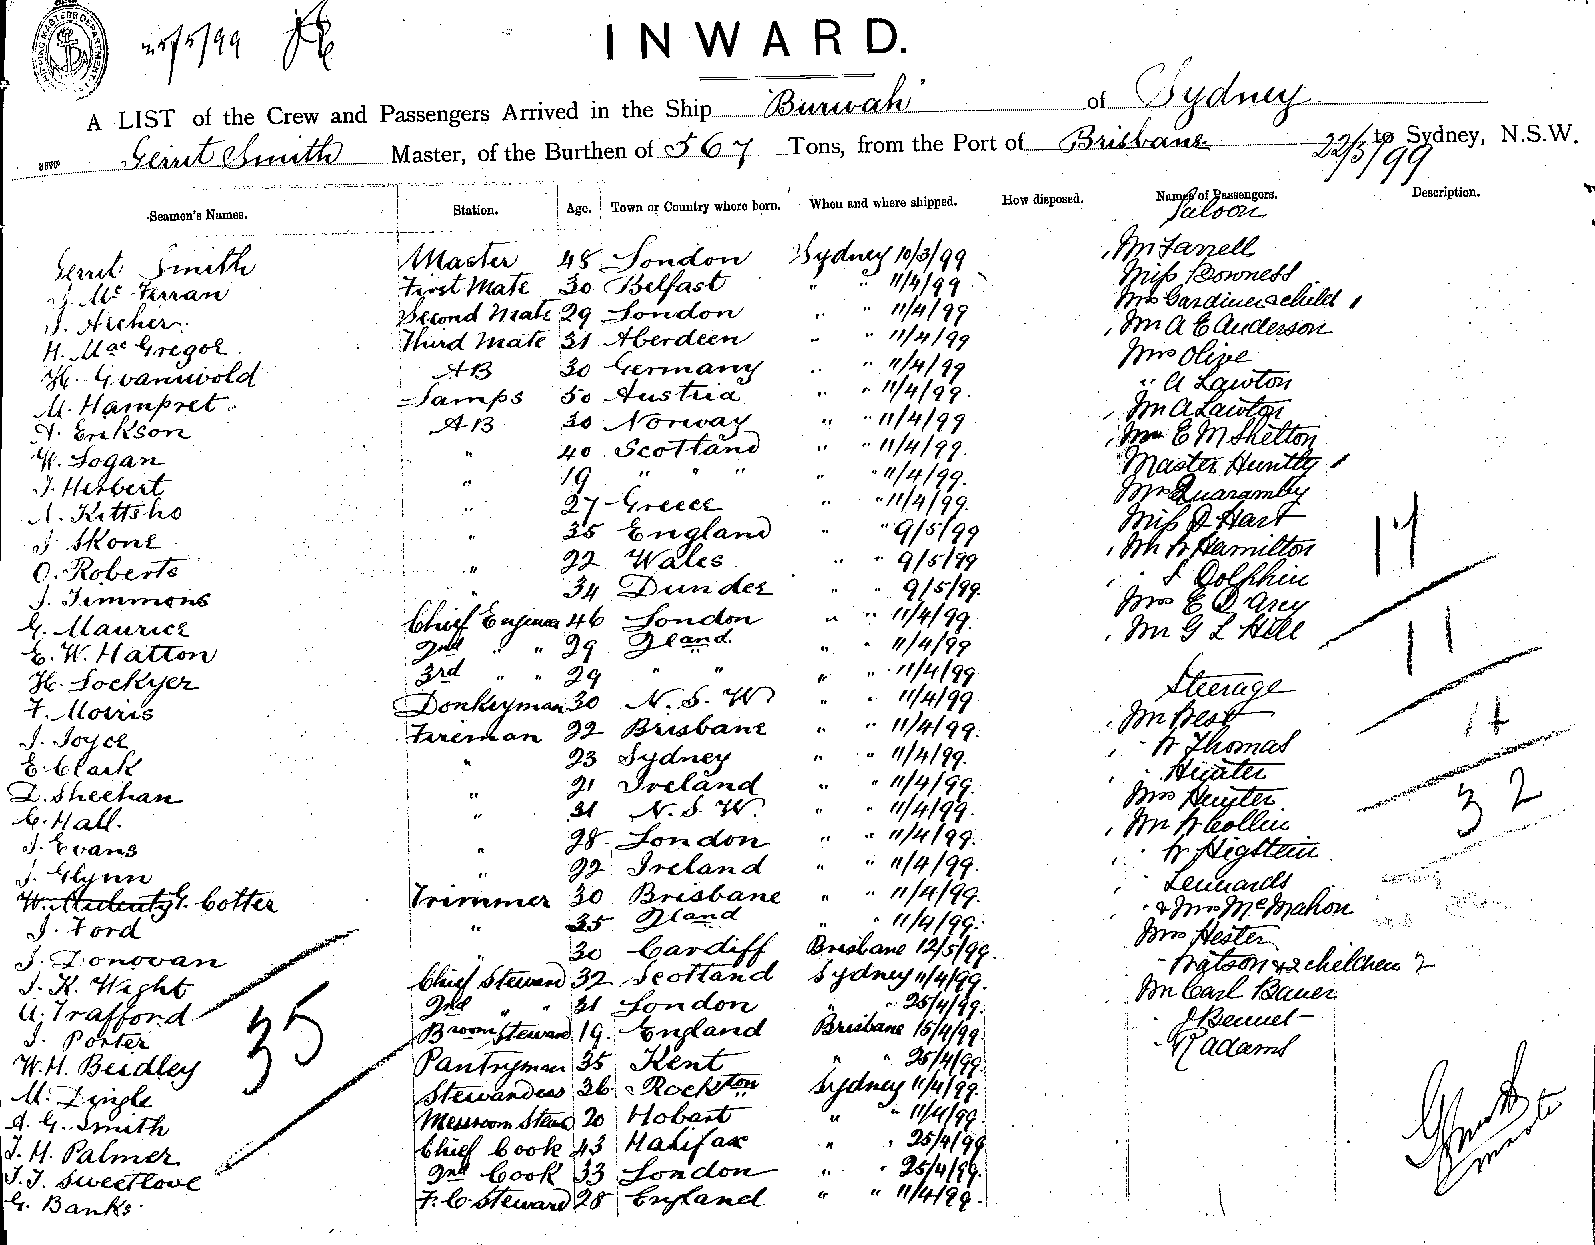 25/5/99
INWARD.
A LIST of the Crew and Passengers Arrived in the Ship "Burwah" of Sydney
Gerrit Smith Master, of the Burthen of 567 Tons, from the Port of Brisbane 22/5/99 to Sydney, N.S.W.
Seamen's Names. Station. Age. Town or Country where born. When and where shipped. How disposed. Names of Passengers. Description.
Saloon
Gerrit Smith Master 48 London Sydney 10/3/99 Mr Farrell
J. Mc Ferran First Mate 30 Belfast " " 11/4/99 Miss Downess
J. Archer Second Mate 29 London " " 11/4/99 Mrs Gardiner & child 1
H. Mac Gregor Third Mate 31 Aberdeen " " 11/4/99 Mr A E Anderson
H. Gvannvold AB 30 Germany " " 11/4/99 Mrs Olive
M. Hampret Lamps 50 Austria " " 11/4/99 " A Lawton
A. Erikson AB 30 Norway " " 11/4/99 Mr A Lawton
W. Logan " 40 Scotland " " 11/4/99 Mr E M Shelton
J. Herbert " 19 " " " " 11/4/99 Master Huntly 1
A. Kittsho " 27 Greece " " 11/4/99 Mrs Quaramby
J. Skone " 35 England " " 9/5/99 Miss D Hart
O. Roberts " 22 Wales " " 9/5/99 Mr W Hamilton 17
J. Timmons 34 Dundee " " 9/5/99 " S Dolphin
G. Maurice Chief Engineer 46 London " " 11/4/99 Mrs E D'Arcy
E. W. Hatton 2nd " " 29 Zland " " 11/4/99 Mr G L Hill
H. Lockyer 3rd " " 29 " " " " 11/4/99 11
Steerage
F. Morris Donkeyman 30 N. S. W " " 11/4/99 Mr West
J. Joyce Fireman 22 Brisbane " " 11/4/99 " W Thomas 14
E. Clark " 23 Sydney " " 11/4/99 " Hunter
D. Sheehan " 21 Ireland " " 11/4/99 Mrs Hunter
G. Hall " 31 N. S. W. " " 11/4/99 Mr W Collin 32
J. Evans " 28 London " " 11/4/99 " W Higstein
J. Glynn " 22 Ireland " " 11/4/99 " Lennards
W. G. Cotter Trimmer 30 Brisbane " " 11/4/99 " & Mrs McMahon
J. Ford " 35 Zland " " 11/4/99 Mrs Hester
J. Donovan " 30 Cardiff Brisbane 12/5/99 " Watson & 2 children 2
J. K. Wight Chief Steward 32 Scotland Sydney 11/4/99 Mr Carl Bauer
A. Trafford 2nd " " 31 London " " 25/4/99 " J Bennet
J. Porter Broom Steward 19 England Brisbane 15/4/99 " R Adams
35
W. H. Beidley Pantryman 35 Kent " " 25/4/99
M. Dingle Stewardess 36 Rockton Sydney 11/4/99
A. G. Smith Messroom Stewd 20 Hobart " " 11/4/99
J. H. Palmer Chief Cook 43 Halifax " " 25/4/99
J. J. Sweetlove 2nd Cook 33 London " " 25/4/99
G. Banks F. C. Steward 28 England " " 11/4/99
G Smith
Master